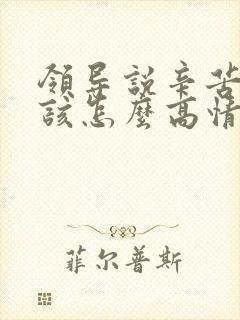 領导說辛苦
該怎麼高情
菲尔普斯